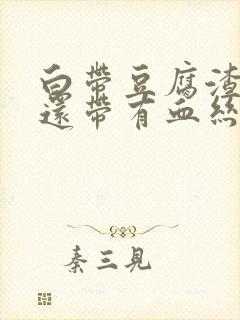 白帶豆腐渣
還帶有血絲
秦三見